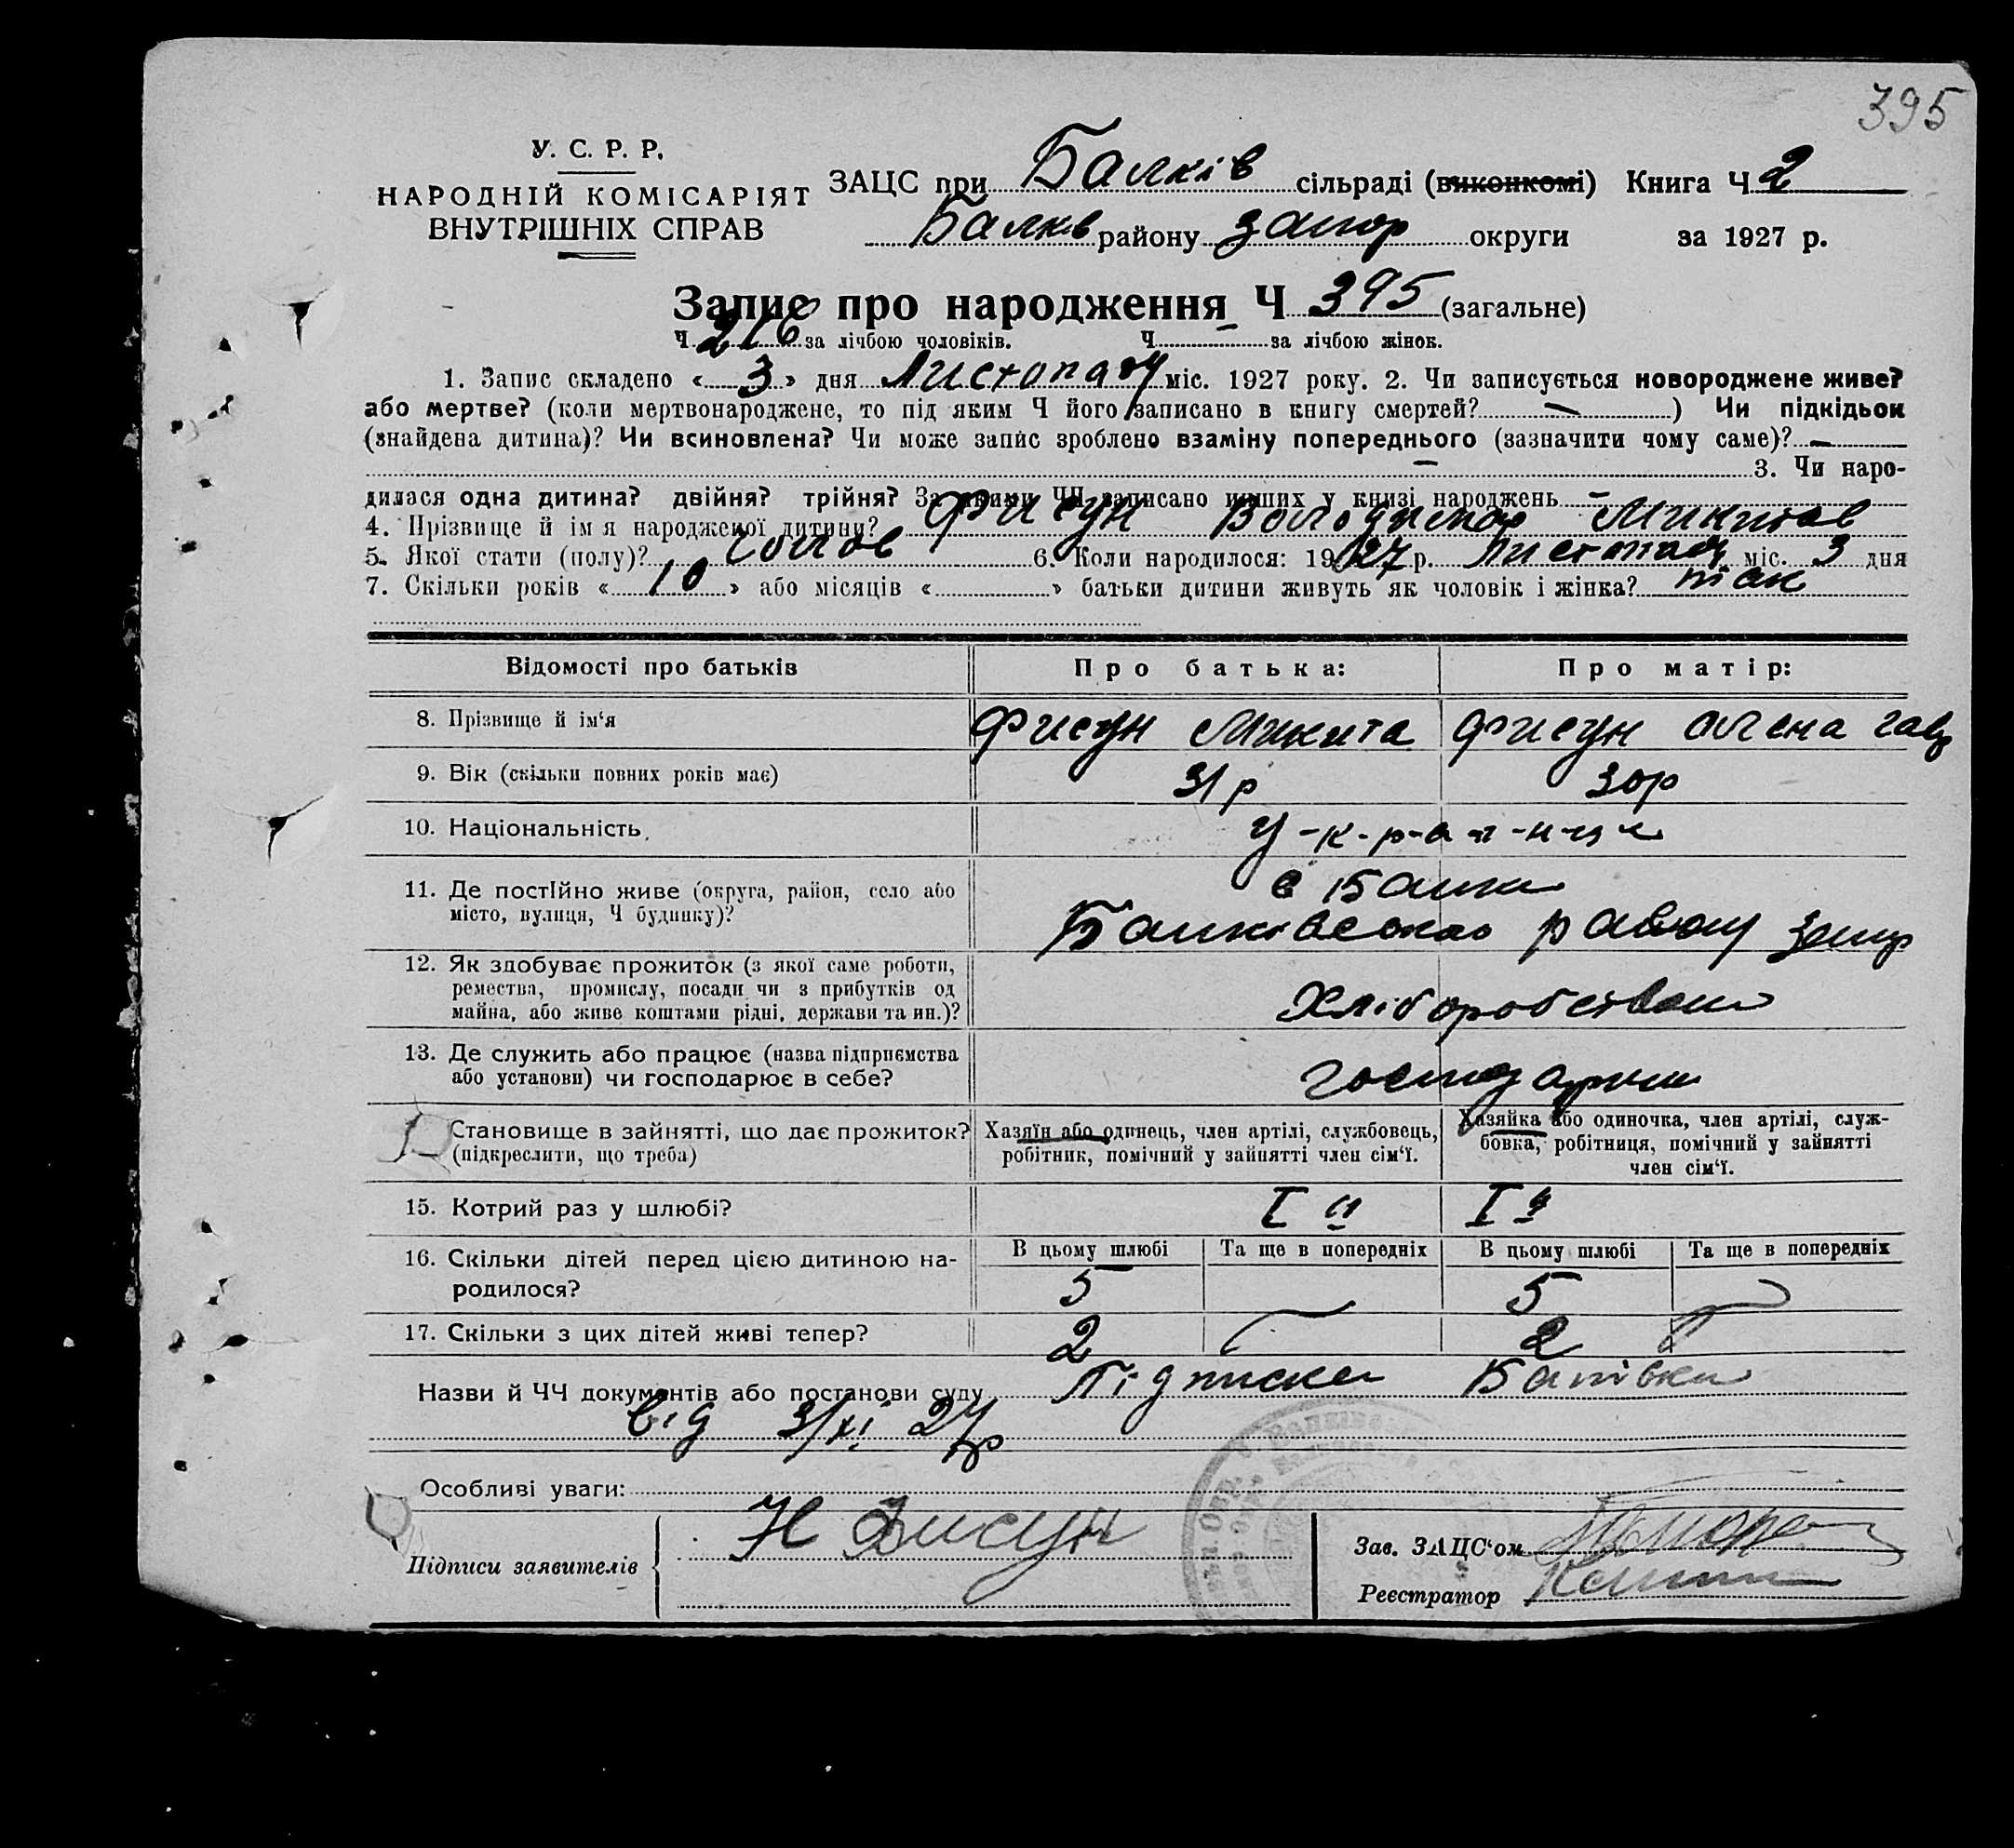 395
У. С. Р. Р.
НАРОДНІЙ КОМІСАРІЯТ
ВНУТРІШНІХ СПРАВ
ЗАЦС при Балків сільраді (виконкомі) Книга Ч 2
Балків району Запор округи за 1927 р.
Запис про народження Ч 395 (загальне)
Ч 216 за лічбою чоловіків. Ч — за лічбою жінок.
1. Запис складено « 3 » дня Листопаду міс. 1927 року. 2. Чи записується новороджене живе?
або мертве? (коли мертвонароджене, то під яким Ч його записано в книгу смертей? — ) Чи підкідьок
(знайдена дитина)? Чи всиновлена? Чи може запис зроблено взаміну попереднього (зазначити чому саме)? —
— 3. Чи наро-
дилася одна дитина? двійня? трійня? За якими ЧЧ записано инших у книзі народжень —
4. Прізвище й ім'я народженої дитини? Фисун Володимир Микитов
5. Якої стати (полу)? чолов 6. Коли народилося: 1927 р. Листопад міс. 3 дня
7. Скільки років « 10 » або місяців « » батьки дитини живуть як чоловік і жінка? так
Відомості про батьків Про батька: Про матір:
8. Прізвище й ім'я Фисун Микита Фисун Олена Гавр
9. Вік (скільки повних років має) 31 р 30 р
10. Національність У-к-р-а-ї-н-ц-і
11. Де постійно живе (округа, район, село або с Балки
місто, вулиця, Ч будинку)? Балківського району Запор
12. Як здобуває прожиток (з якої саме роботи,
ремества, промислу, посади чи з прибутків од Хліборобством
майна, або живе коштами рідні, держави та ин.)?
13. Де служить або працює (назва підприємства
або установи) чи господарює в себе?
Становище в зайнятті, що дає прожиток? Хазяїн або одинець, член артілі, службовець, Хазяйка або одиночка, член артілі, служ-
(підкреслити, що треба) робітник, помічний у зайнятті член сім'ї. бовка, робітниця, помічний у зайнятті
член сім'ї.
15. Котрий раз у шлюбі? І й І й
16. Скільки дітей перед цією дитиною на- В цьому шлюбі Та ще в попередніх В цьому шлюбі Та ще в попередніх
родилося? 5 5
17. Скільки з цих дітей живі тепер? 2 2
Назви й ЧЧ документів або постанови суду Підписка
від 3/XI 27 р
Особливі уваги:
Підписи заявителів Н Фисун
Зав. ЗАЦС'ом
Реєстратор